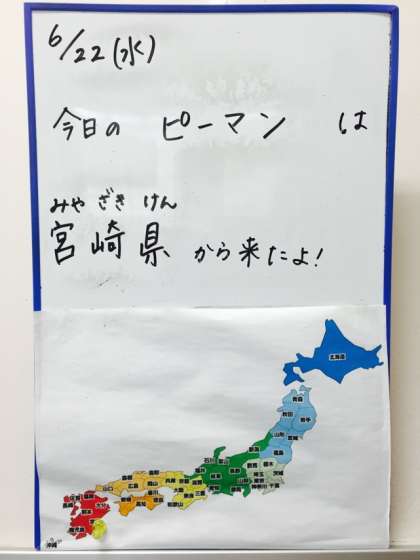 6/22(水)
今日の ピーマン は
みや ざき けん
宮崎県 から来たよ!
北海道
青森
秋田 岩手
山形 宮城
福島
新潟
石川 富山
福井 長野 群馬 栃木
岐阜 埼玉 茨城
山梨 東京
愛知 静岡 神奈川 千葉
島根 鳥取 兵庫 京都 滋賀
山口 広島 岡山
大阪 奈良 三重
香川 徳島
和歌山
愛媛 高知
佐賀 福岡
長崎 大分
熊本
鹿児島
沖縄